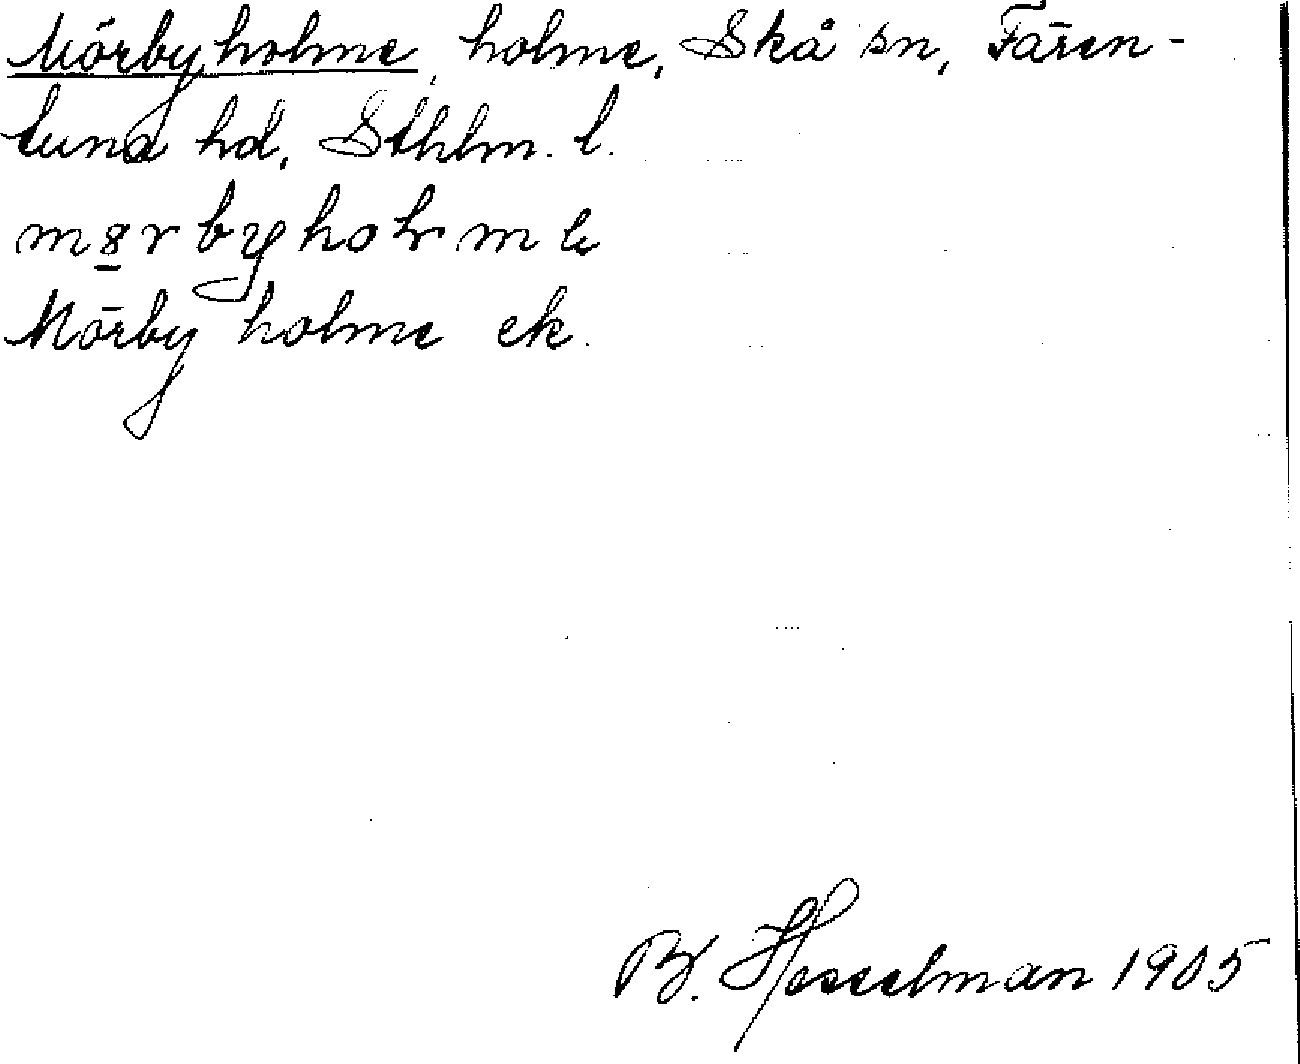 Mörbyholme, holme, Skå sn, Fären-
tuna hd, Sthlm. l.
Mörby holme ek.
B. Hesselman 1905